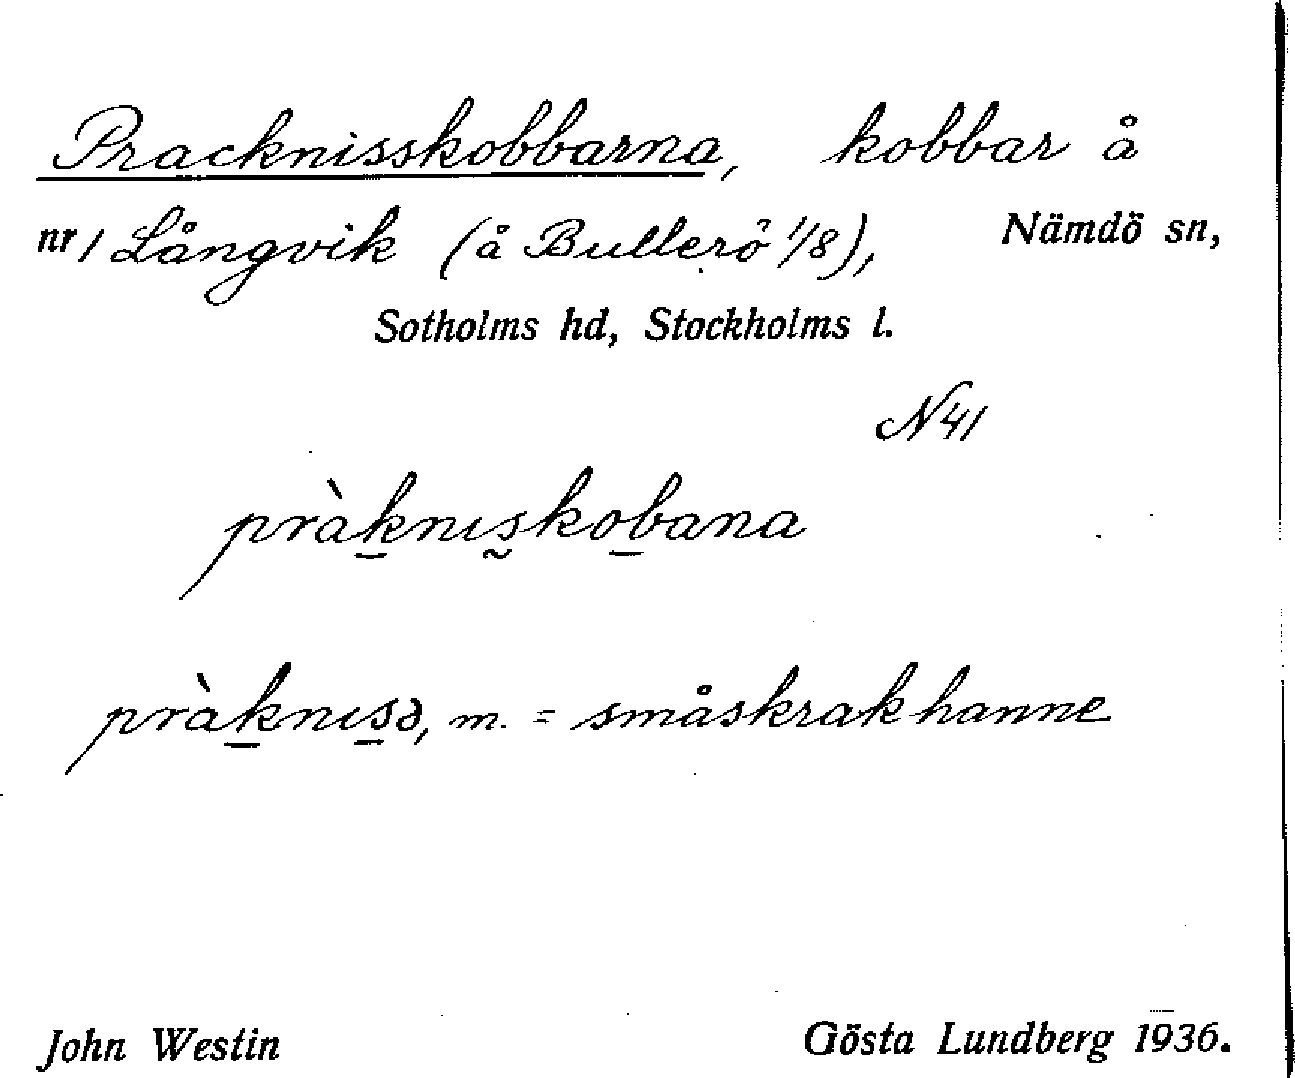 Pracknisskobbarna, kobbar å
nr 1 Långvik (å Bullerö 1/8), Nämdö sn,
Sotholms hd, Stockholms l.
N41
pràk̲nıs̰ko̲bana
pràk̲nıs̲ə, m. = småskrakhanne
John Westin Gösta Lundberg 1936.